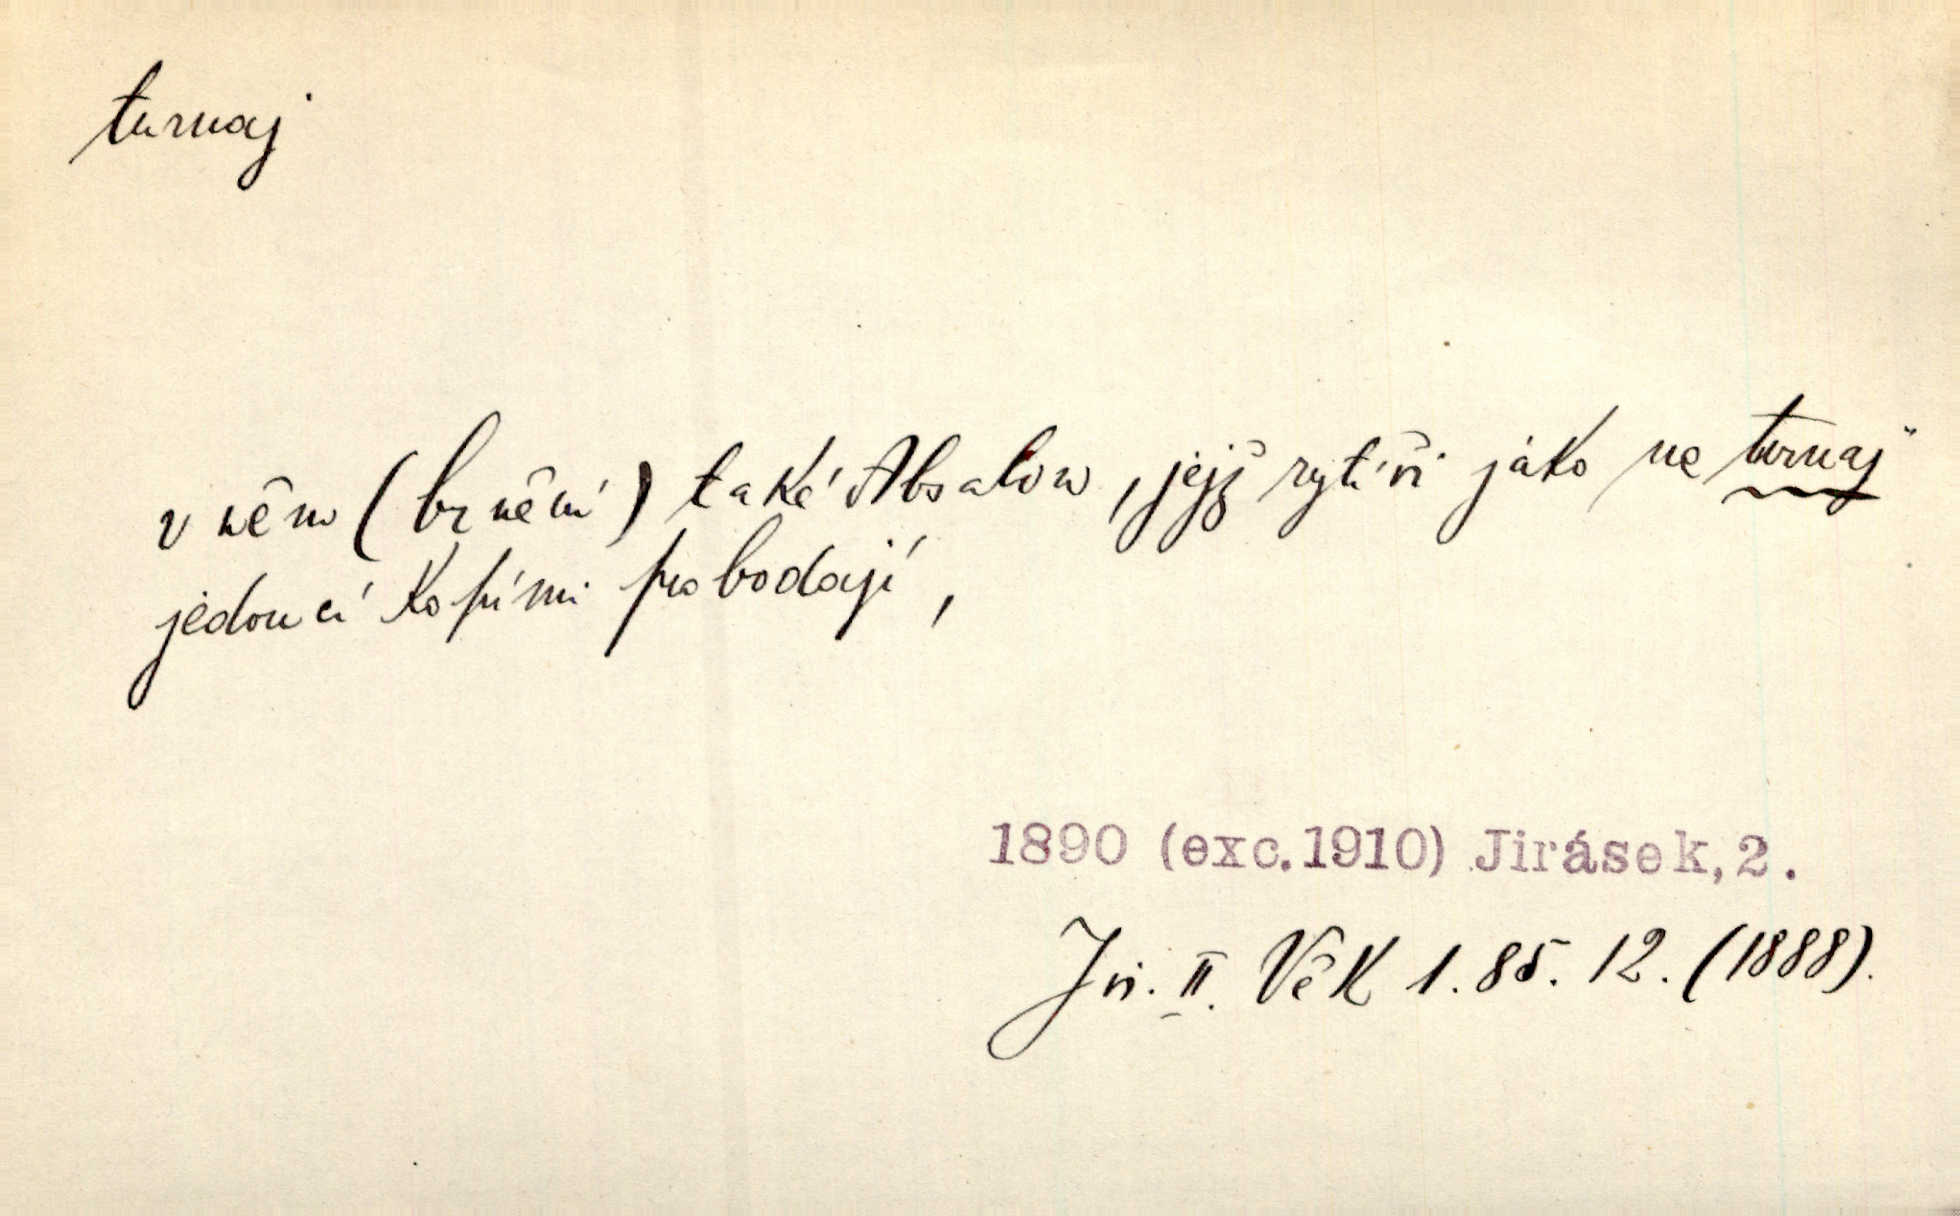 turnaj
v něm (brnění) také Absalon, jejž rytíři jako na turnaj
jedoucí kopími probodají,
1890 (exc.1910) Jirásek,2.
Jir. II. Věk 1. 85. 12. (1888).